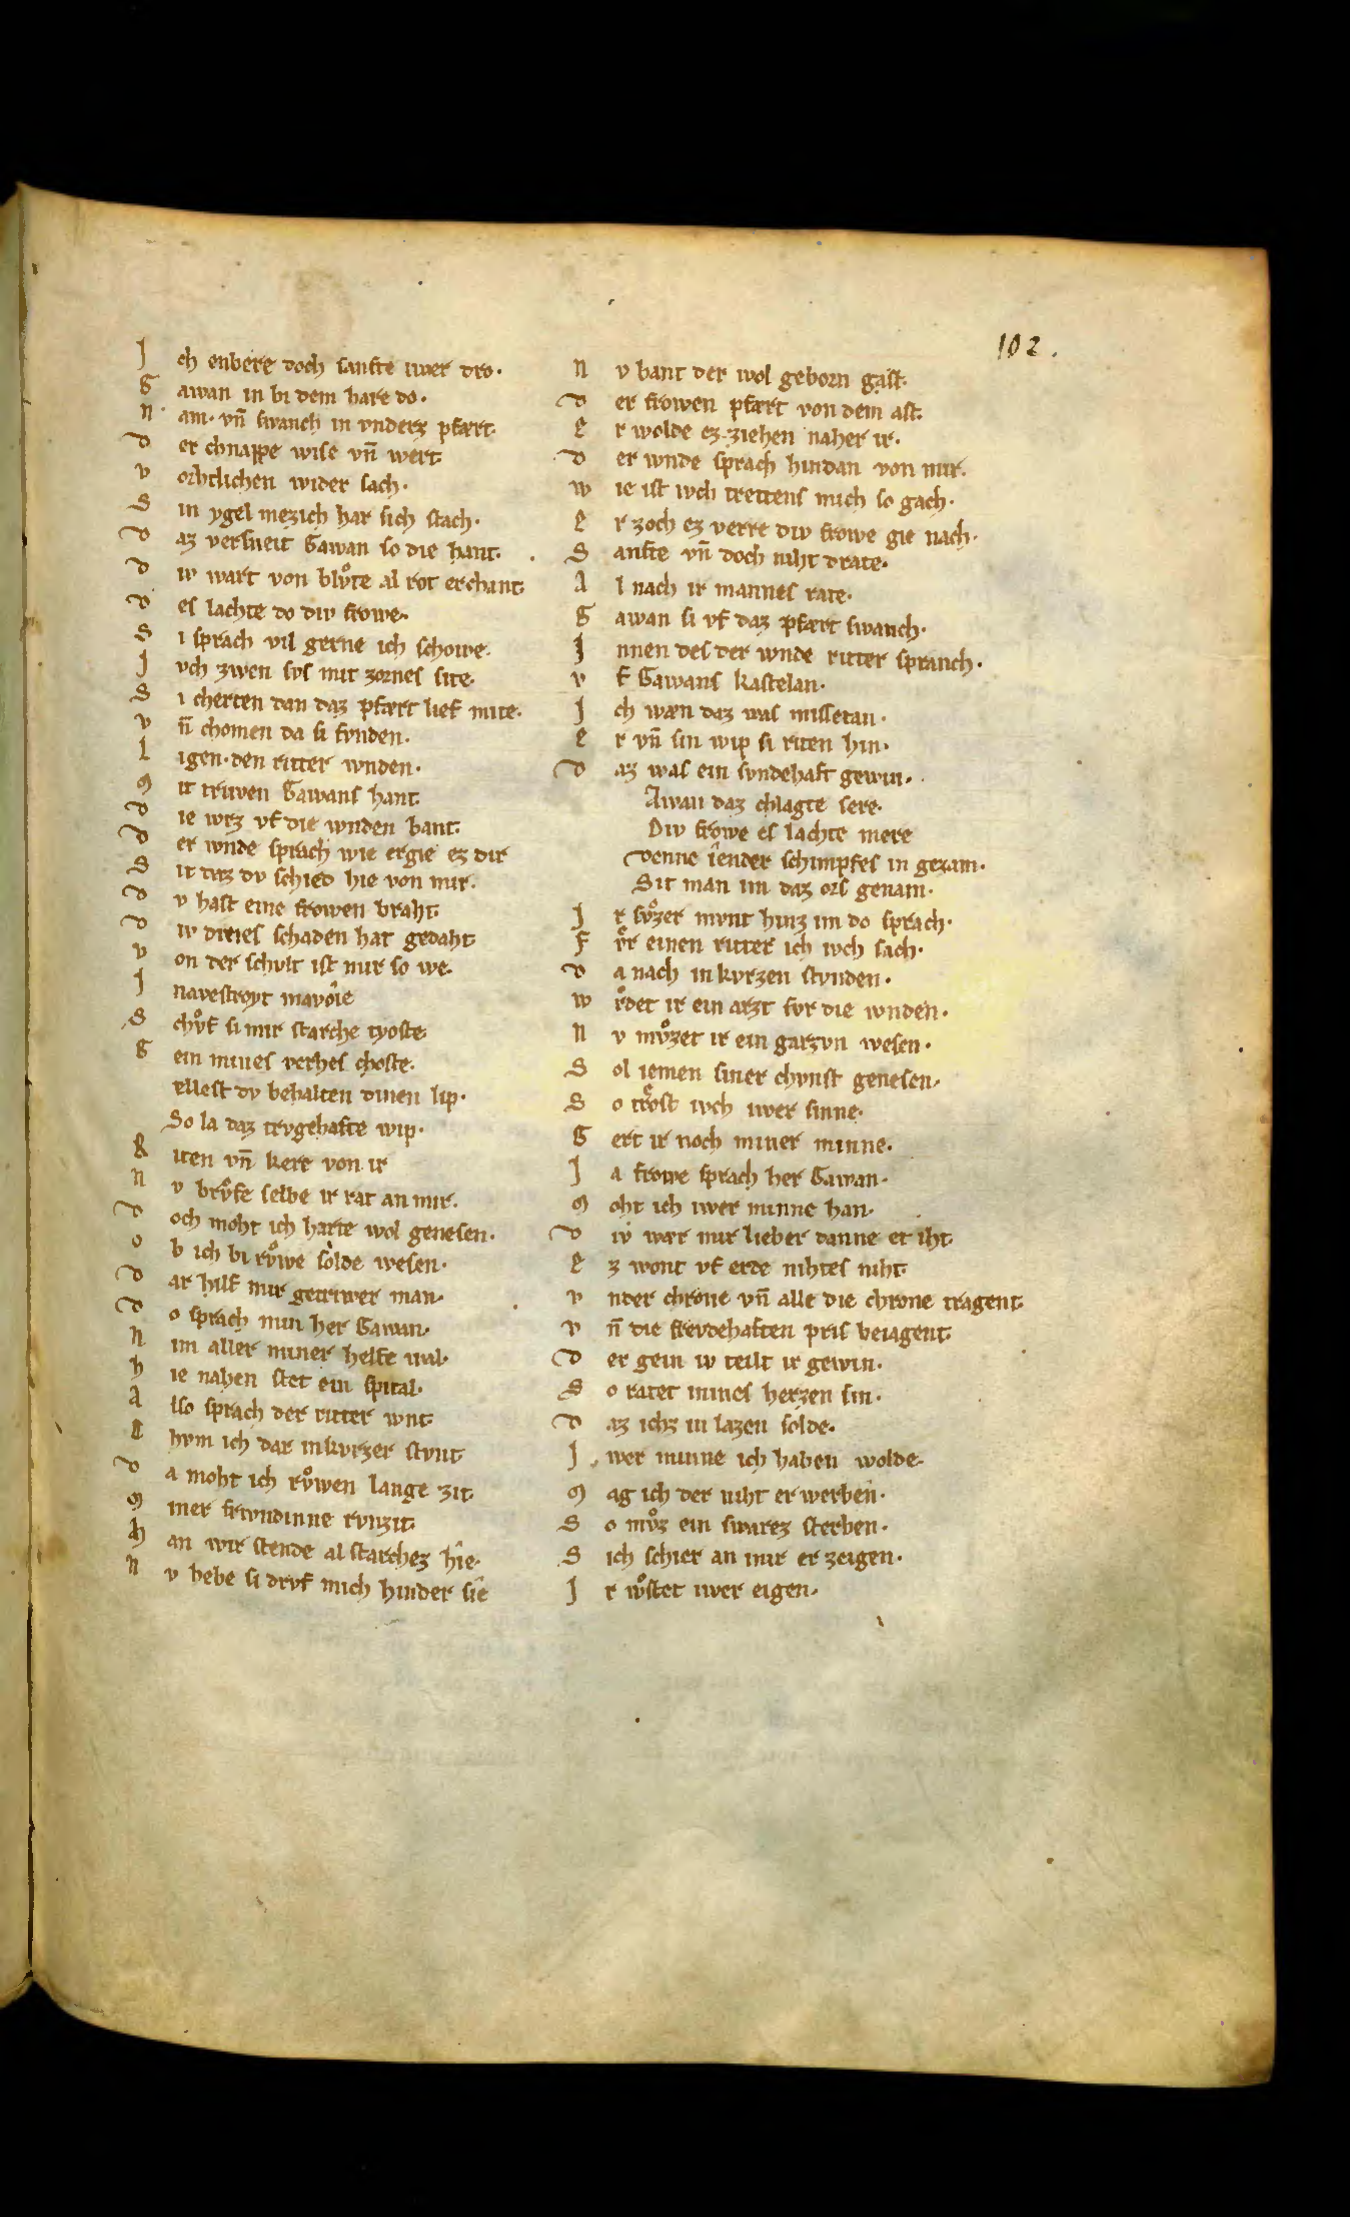 102.
J ch enbere doch sanfte iwer dro·
G awan in bi dem hare do·
N am· vn̄ swanch in vnderz pfært·
D er chnappe wise vn̄ wert·
V orhtlichen wider sach·
S in ygel mezich har sich stach·
D az versneit Gawan so die hant·
D iv wart von blv̊te al rot erchant·
D es lachte do div frowe·
S i sprach vil gerne ich schowe·
J vch zwen svs mit zornes site·
S i cherten dan daz pfært lief mite·
V n̄ chomen da si fvnden·
L igen· den ritter wnden·
M it triwen Gawans hant·
D ie wrz vf die wnden bant·
D er wnde sprach wie ergie ez dir
S it daz dv schied hie von mir·
D v hast eine frowen braht·
D iv dines schaden hat gedaht·
V on der schvlt ist mir so we·
J navestroyt mavoîe
S chv̊f si mir starche tyoste·
G ein mines verhes choste·
ellest dv behalten dinen lip·
So la daz trvgehafte wip·
R iten vn̄ kere von ir
N v brv̊fe selbe ir rat an mir·
D och moht ich harte wol genesen·
O b ich bi rv̊we solde wesen·
D ar hilf mir getriwer man·
D o sprach min her Gawan·
N im aller miner helfe wal·
H ie nahen stet ein spital·
A lso sprach der ritter wnt·
C hvm ich dar inkvrzer stvnt·
D a moht ich rv̊wen lange zit·
M iner frivndinne rvnzit·
H an wir stende al starchez hîe·
N v hebe si drvf mich hinder sîe
N v bant der wol geborn gast·
D er frowen pfært von dem ast·
E r wolde ez ziehen naher ir·
D er wnde sprach hindan von mir·
W ie ist ivch trettens mich so gach·
E r zoch ez verre div frowe gie nach·
S anfte vn̄ doch niht drate·
A l nach ir mannes rate·
G awan si vf daz pfært swanch·
J nnen des der wnde ritter spranch·
V f Gawans kastelan·
J ch wæn daz was missetan·
E r vn̄ sin wip si riten hin·
D az was ein svndehaft gewin·
Awan daz chlagte sere·
Div frowe es lachte mere
Denne îender schimpfes in gezam·
Sit man im daz ors genam·
J r sv̊zer mvnt hinz im do sprach·
F v̊r einen ritter ich ivch sach·
D a nach in kvrzen stvnden·
W v̊rdet ir ein arzt fvr die wnden·
N v mv̊zet ir ein garzvn wesen·
S ol iemen siner chvnst genesen·
S o trost ivch iwer sinne·
G ert ir noch miner minne·
J a frowe sprach her Gawan·
M oht ich iwer minne han·
D iv wær mir lieber danne et iht·
E z wont vf erde nihtes niht·
V nder chrone vn̄ alle die chrone tragent·
V n̄ die frevdehaften pris beiagent·
D er gein iv teilt ir gewin·
S o ratet mines herzen sin·
D az ichz in lazen solde·
J wer minne ich haben wolde·
M ag ich der niht erwerben·
S o mv̊z ein swarez sterben·
S ich schier an mir erzeigen·
J r wv̊stet iwer eigen·